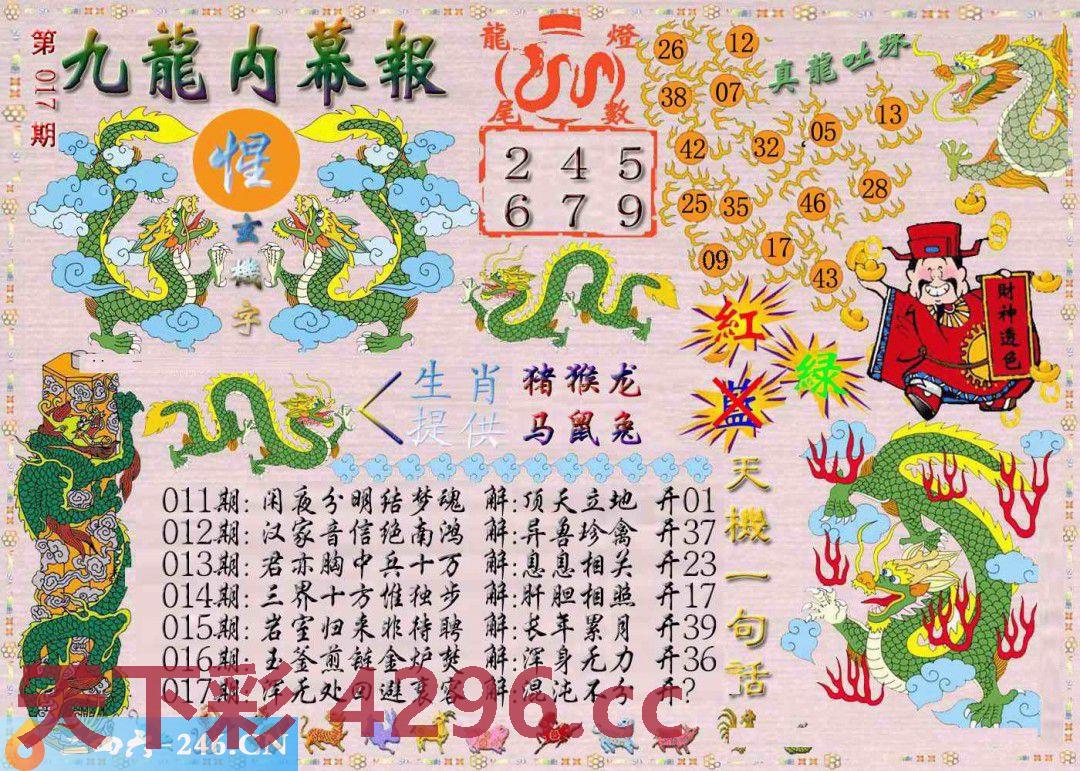 第017期
九龍内幕報
惺
玄機字
龍燈
尾數
2 4 5
6 7 9
26 12
38 07
42 32 05 13
25 35 46 28
09 17 43
真龍吐珠
財神透色
紅
蓝
绿
生肖 猪猴龙
提供 马鼠兔
天機一句話
011期: 闲夜分明结梦魂 解:顶天立地 开01
012期: 汉家音信绝南鸿 解:异兽珍禽 开37
013期: 君亦胸中兵十万 解:息息相关 开23
014期: 三界十方惟独步 解:肝胆相照 开17
015期: 岩室归来非待聘 解:长年累月 开39
016期: 玉釜煎链金炉焚 解:浑身无力 开36
017期: 浑无处回避衰容 解:混沌不分 开?
天下彩 4296.cc
246.CN